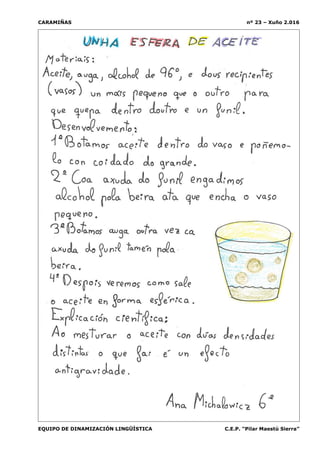 CARAMIÑAS nº 23 – Xuño 2.016
UNHA ESFERA DE ACEITE
Materiais:
Aceite, auga, alcohol de 96º, e dous recipientes
(vasos) un máis pequeno que o outro para
que quepa dentro doutro e un funil.
Desenvolvemento:
1º Botamos aceite dentro do vaso e poñemo-
lo con coidado do grande.
2º Coa axuda do funil engadimos
alcohol pola beira ata que encha o vaso
pequeno.
3º Botamos auga outra vez ca
axuda do funil tamén pola
beira.
4º Despois veremos como sale
o aceite en forma esférica.
Explicación científica:
Ao mesturar o aceite con dúas densidades
distintas o que fai é un efecto
antigravidade.
Ana Michalowicz 6º
EQUIPO DE DINAMIZACIÓN LINGÜÍSTICA C.E.P. "Pilar Maestú Sierra"